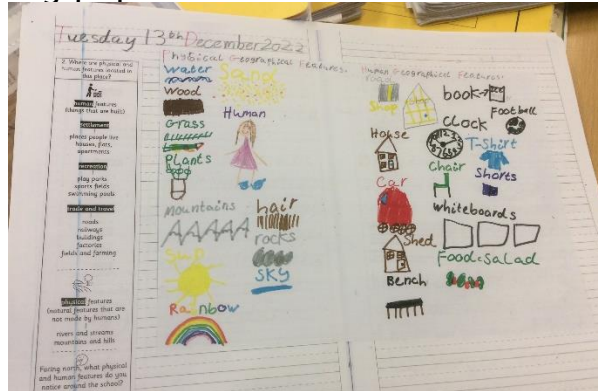 Tuesday 13th December 2022
2. Where are physical and human features located in this place?
human features
(things that are built)
settlement
places people live
houses, flats,
apartments
recreation
play parks
sports fields
swimming pools
trade and travel
roads
railways
buildings
factories
fields and farming
physical features
(natural features that are
not made by humans)
rivers and streams
mountains and hills
Facing north, what physical
and human features do you
notice around the school?
Physical Geographical Features.
water
Sand
wood
Human
Grass
Plants
mountains
hair
rocks
Sun
sky
Rainbow
Human Geographical Features.
Shop
book
Football
Clock
House
T-Shirt
Chair
Shorts
Car
whiteboards
Shed
Food=Salad
Bench